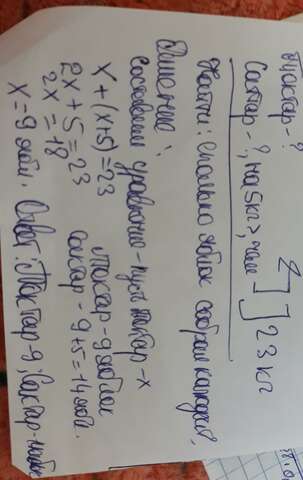 Тоқтар - ?
Сактар - ?, на 5 кг >, чем ] 23 кг
Найти: сколько яблок собрал каждый?
Решение:
Составим уравнение - пусть Тоқтар - x
x + (x+5) = 23
2x + 5 = 23 Тоқтар - 9 яблок
2x = 18 Сактар - 9 + 5 = 14 ябл.
x = 9 яблок. Ответ: Тоқтар 9; Сактар - 14 ябл